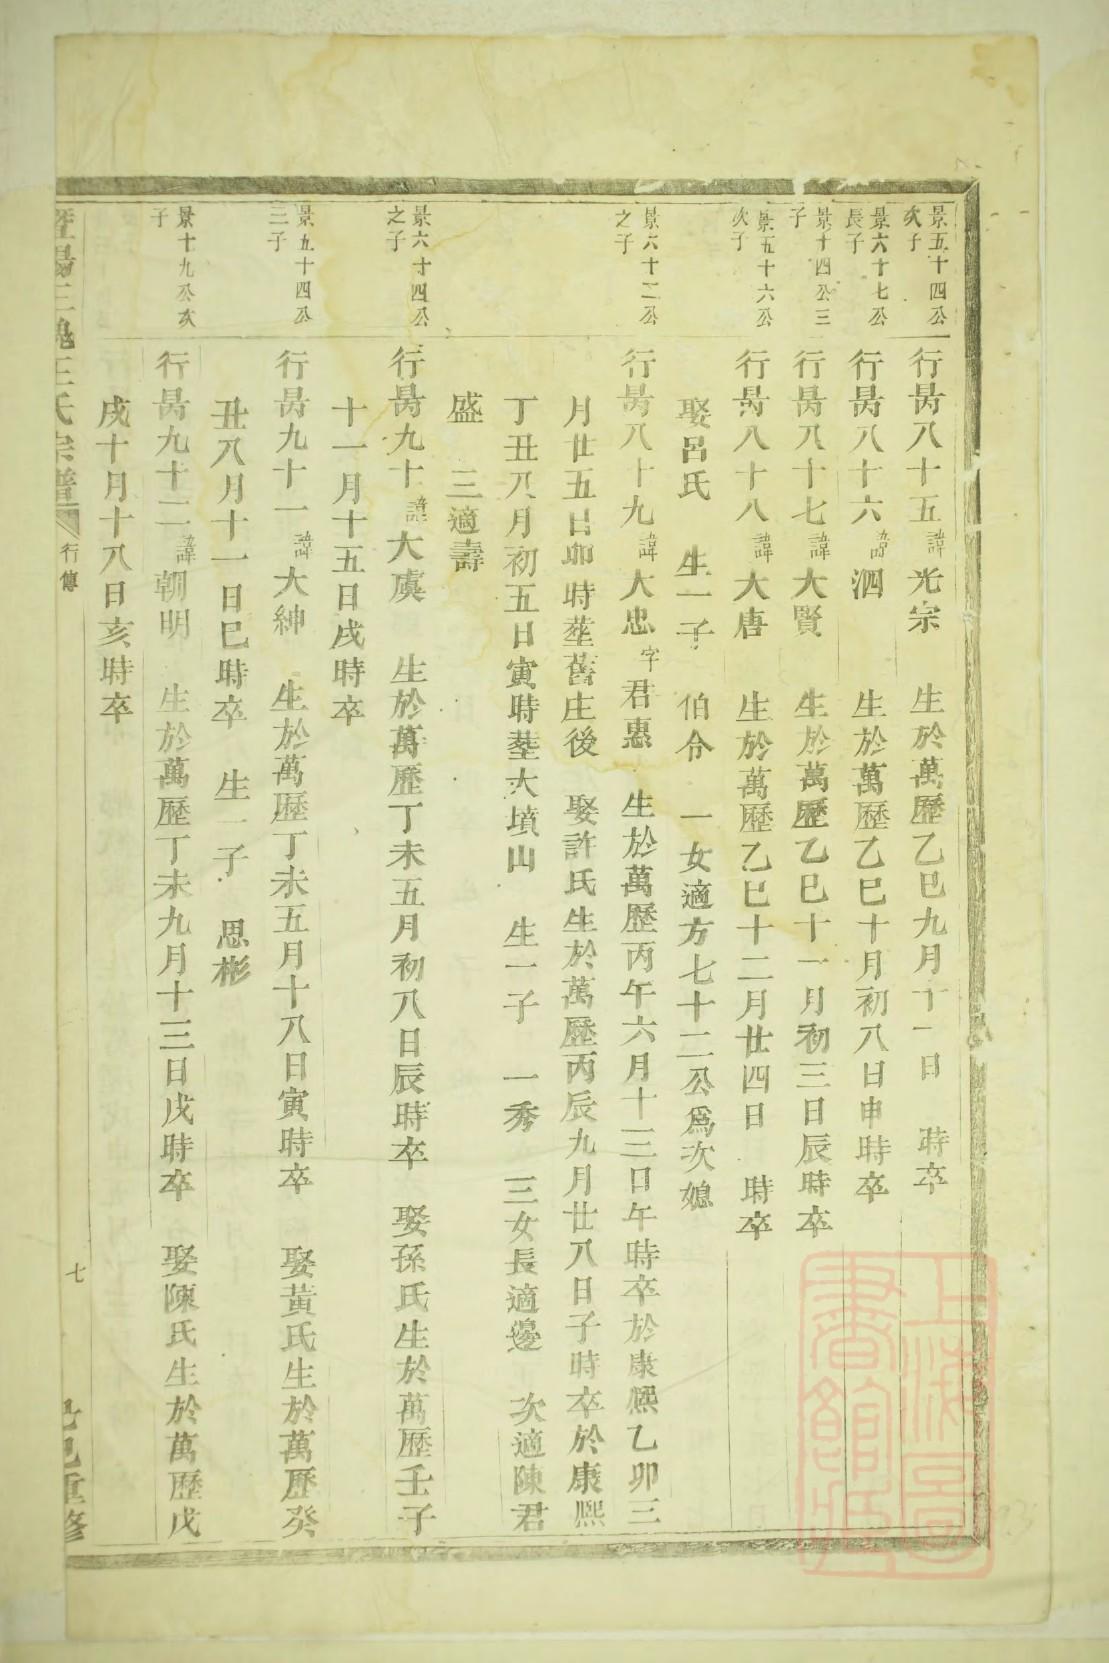 景五十四公
次子
行昺八十五諱光宗　生於萬歷乙巳九月十一日　時卒
景六十七公
長子
行昺八十六諱泗　生於萬歷乙巳十月初八日申時卒
景十四公三
子
行昺八十七諱大賢　生於萬歷乙巳十一月初三日辰時卒
景五十六公
次子
行昺八十八諱大唐　生於萬歷乙巳十二月廿四日　時卒
娶呂氏　生一子　伯令　一女適方七十二公爲次媳
景六十二公
之子
行昺八十九諱大忠字君惠　生於萬歷丙午六月十三日午時卒於康熙乙卯三
月廿五日卯時塟舊庄後　娶許氏生於萬歷丙辰九月廿八日子時卒於康熙
丁丑八月初五日寅時塟大墳山　生一子　一秀　三女長適邊　次適陳君
盛　三適壽
景六十四公
之子
行昺九十諱大虞　生於萬歷丁未五月初八日辰時卒　娶孫氏生於萬歷壬子
十一月十五日戌時卒
景五十四公
三子
行昺九十一諱大紳　生於萬歷丁未五月十八日寅時卒　娶黃氏生於萬歷癸
丑八月十一日巳時卒　生一子　思彬
景十九公亥
子
行昺九十二諱朝明　生於萬歷丁未九月十三日戌時卒　娶陳氏生於萬歷戊
戌十月十八日亥時卒
暨陽三槐王氏宗譜　行傳　七　己巳重修
上海圖
書館藏